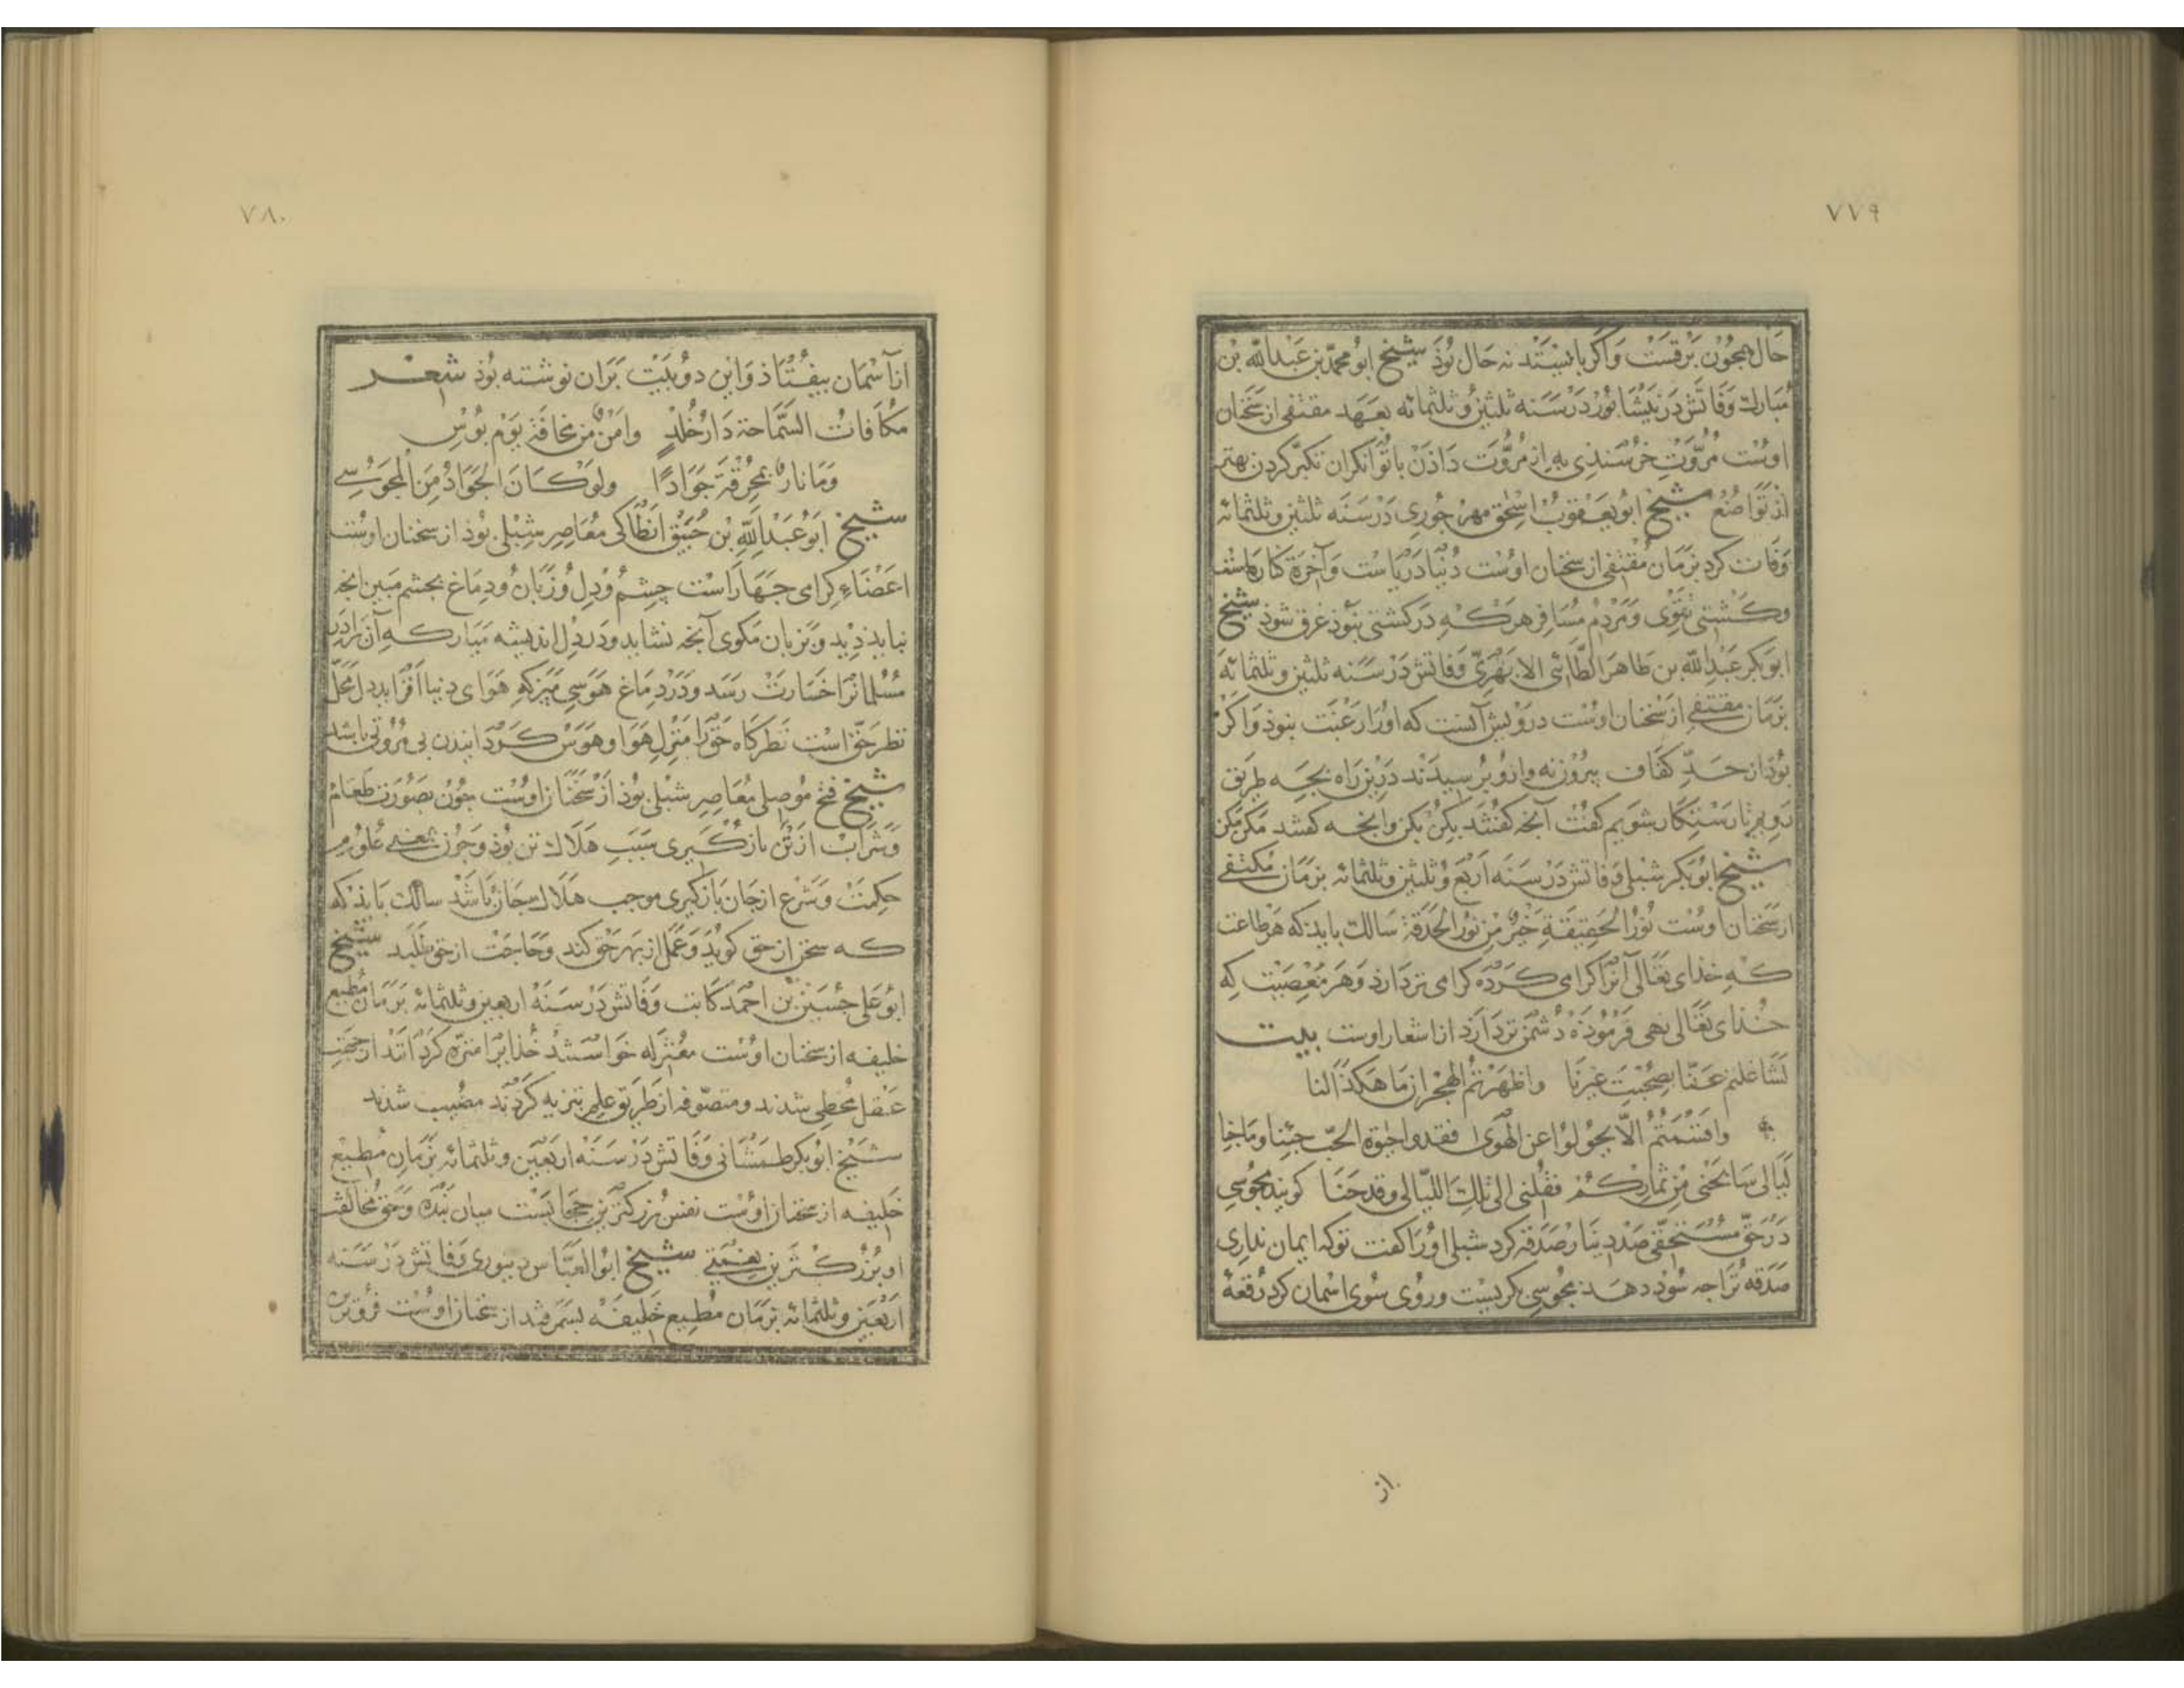 ٧٧٩
حال همچون برقست واگر بایستد نه حال بوذ شیخ ابو محمد بن عبدالله بن
مبارك وفاتش در نیشابور در سنه ثلثین وثلثمائه بعهد مقتفی از سخنان
اوست مروت خرسندی به از مروت داذن با توانگران تکبر کردن بهتر
از تواضع شیخ ابو یعقوب اسحق نهرجوری در سنه ثلثین وثلثمائه
وفات کرد بزمان مقتفی از سخنان اوست دنیا دریاست وآخرة کناره‌اش
وکشتی تقوی ومردم مسافر هر که در کشتی نبوذ غرق شوذ شیخ
ابوبکر عبدالله بن طاهر الطائی الابهری وفاتش در سنه ثلثین وثلثمائه
بزمان مقتفی از سخنان اوست درویش آنست که اورا رغبت نبوذ واگر
بوذ از حد کفاف بیرون نه وازو پرسیدند درین راه بچه طریق
رویم تا رستکار شویم کفت آنچه کفتند بکن بکن وانچه کفتند مکن مکن
شیخ ابوبکر شبلی وفاتش در سنه اربع وثلثین وثلثمائه بزمان مکتفی
از سخنان اوست نور الحقیقة خیر من نور الحدقة سالك باید که هر طاعت
که خذای تعالی آنرا کرامی کرده کرامی تر دارذ وهر معصیت که
خذای تعالی نهی فرموذه دشمن تر دارذ از اشعار اوست بیت
تشاغلتم عنا بصحبت غیرنا واظهرتم الهجران ما هکذا کنا
واقسمتم الا یحولوا عن الهوی فقد وحیوة الحب
لیالی من ثمارکم فقلنی الی تلك اللیالی وقد کویند مجوسی
در حق مستحقی صد دینار صدقه کرد شبلی اورا کفت توکه ایمان نداری
صدقه ترا چه سوذ دهد مجوسی بکریست وروی سوی اسمان کرد رقعۀ
از
٧٨٠
از آسمان بیفتاذ واین دو بیت بران نوشته بوذ شعر
مکافات السماحة دار خلد وامن من مخافة یوم بوس
وما نار بمحرقة جوادا ولو کان الجواد من المجوسی
شیخ ابو عبدالله بن خبیق انطاکی معاصر شبلی بوذ از سخنان اوست
اعضاء کرامی چهار است چشم ودل وزبان ودماغ بچشم مبین انچه
نباید دید وبزبان مکوی آنچه نشاید ودر دل اندیشه میار که آن برادر
مسلمانرا خسارت رسد ودر دماغ هوسی مپز که هوای دنیا افزاید دل محل
نظر حق است نظرکاه حق را منزل هوا وهوس کردانیدن بی مروتی باشد
شیخ فتح موصلی معاصر شبلی بوذ از سخنان اوست چون بصورت طعام
وشراب از تن بازکیری سبب هلاك تن بوذ وچون معنی علوم
حکمت وشرع از جان بازکیری موجب هلاك جان باشد سالك بایذ که
که سخن از حق کوید وعمل از بهر حق کند وحاجت از حق طلبد شیخ
ابو علی حسین بن احمد کاتب وفاتش در سنه اربعین وثلثمائه بزمان مطیع
خلیفه از سخنان اوست معتزله خواستند خذایرا منزه کردانند از جهت
عقل مخطی شدند ومتصوفه از طریق علم تنزیه کردند مصیب شدند
شیخ ابوبکر طمستانی وفاتش در سنه اربعین وثلثمائه بزمان مطیع
خلیفه از سخنان اوست نفس بزرکترین حجابیست میان بنده وحق مخالفت
او بزرکترین نعمتی شیخ ابو العباس دینوری وفاتش در سنه
اربعین وثلثمائه بزمان مطیع خلیفه بسمرقند از سخنان اوست فروترین